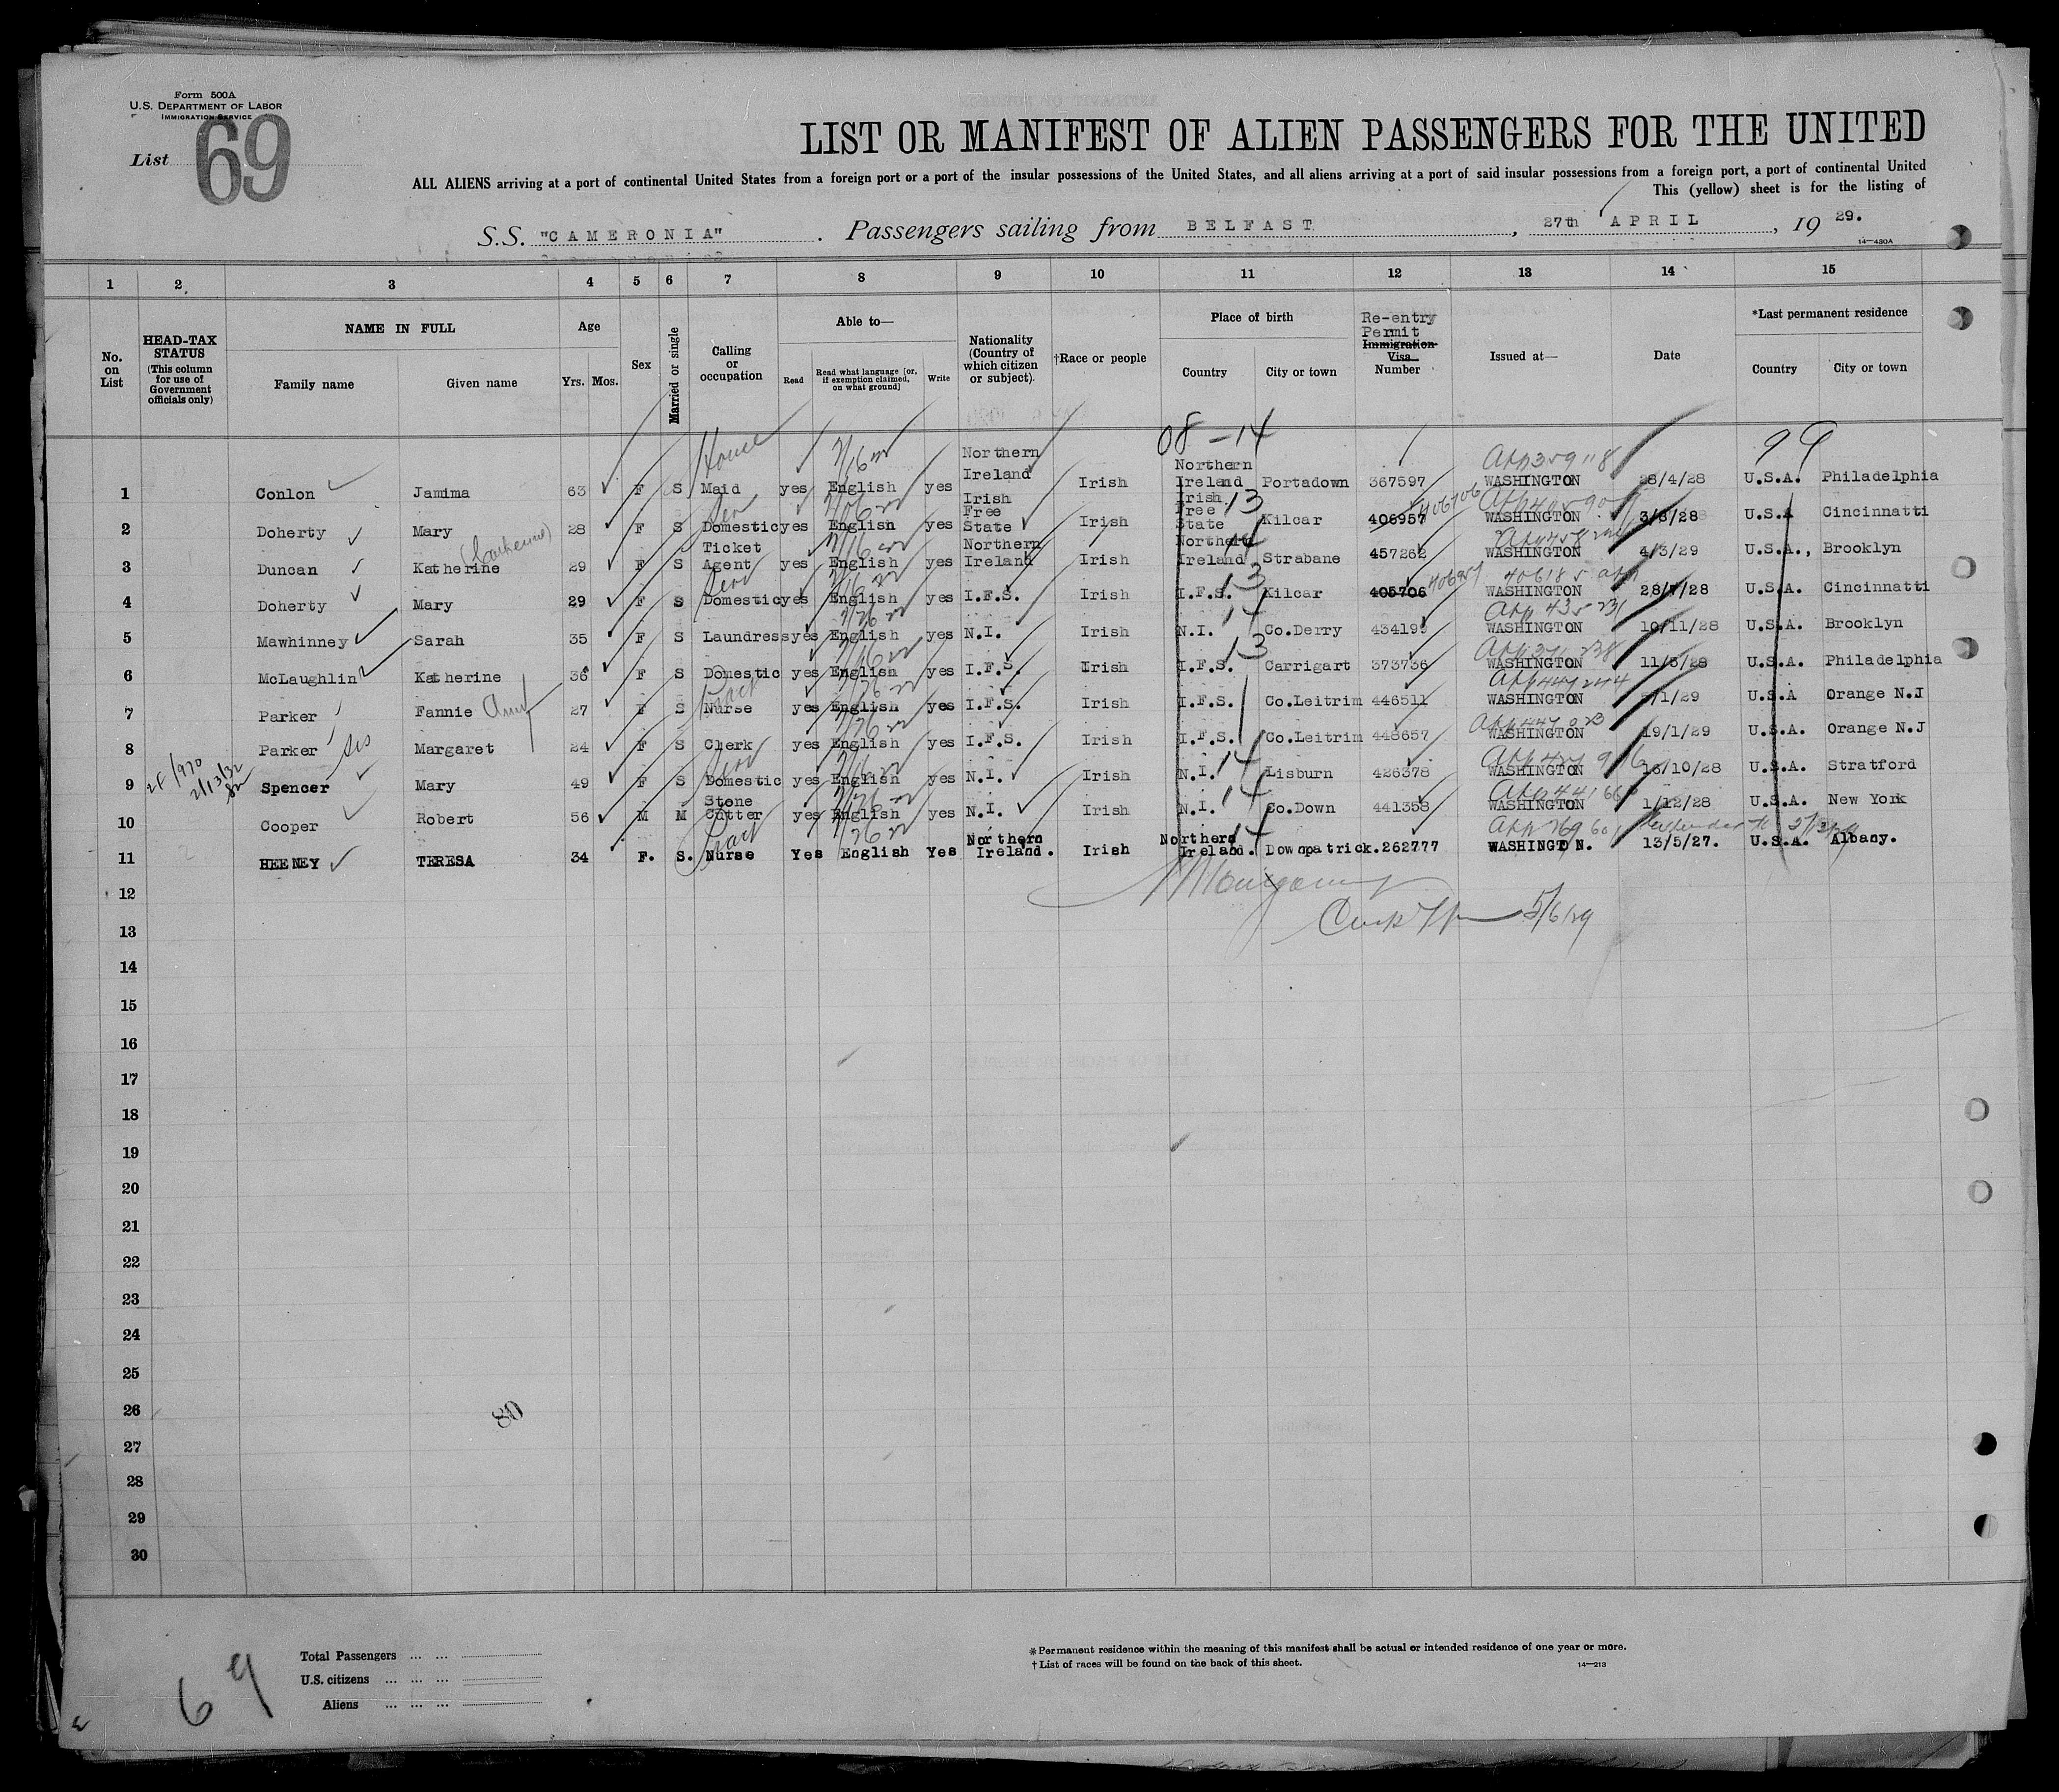 Form 500A
U.S. DEPARTMENT OF LABOR
IMMIGRATION SERVICE
List 69
LIST OR MANIFEST OF ALIEN PASSENGERS FOR THE UNITED
ALL ALIENS arriving at a port of continental United States from a foreign port or a port of the insular possessions of the United States, and all aliens arriving at a port of said insular possessions from a foreign port, a port of continental United
This (yellow) sheet is for the listing of
S.S. "CAMERONIA". Passengers sailing from BELFAST, 27th APRIL, 19 29.
14—430A
1 2 3 4 5 6 7 8 9 10 11 12 13 14 15
No. on List
HEAD-TAX STATUS (This column for use of Government officials only)
NAME IN FULL
Family name Given name
Age
Yrs. Mos.
Sex
Married or single
Calling or occupation
Able to—
Read Read what language [or, if exemption claimed, on what ground] Write
Nationality (Country of which citizen or subject).
†Race or people
Place of birth
Country City or town
Re-entry Permit
Immigration Visa Number
Issued at—
Date
*Last permanent residence
Country City or town
08-14 99
1 Conlon Jamima 63 F S House Maid yes English yes Northern Ireland Irish Northern Ireland Portadown 367597 WASHINGTON 28/4/28 U.S.A. Philadelphia
2 Doherty Mary 28 F S Domestic yes English yes Irish Free State Irish Irish Free State 13 Kilcar 406957 406706 WASHINGTON 3/8/28 U.S.A Cincinnatti
3 Duncan Katherine (Catherine) 29 F S Ticket Agent yes English yes Northern Ireland Irish Northern Ireland 14 Strabane 457262 WASHINGTON 4/3/29 U.S.A., Brooklyn
4 Doherty Mary 29 F S Domestic yes English yes I.F.S. Irish I.F.S. 13 Kilcar 405706 406957 WASHINGTON 28/7/28 U.S.A. Cincinnatti
5 Mawhinney Sarah 35 F S Laundress yes English yes N.I. Irish N.I. 14 Co.Derry 434195 WASHINGTON 10/11/28 U.S.A. Brooklyn
6 McLaughlin Katherine 36 F S Domestic yes English yes I.F.S. Irish I.F.S. 13 Carrigart 373736 WASHINGTON 11/5/28 U.S.A. Philadelphia
7 Parker Fannie 27 F S Nurse yes English yes I.F.S. Irish I.F.S. Co.Leitrim 446511 WASHINGTON /1/29 U.S.A Orange N.J
8 Parker sis Margaret 24 F S Clerk yes English yes I.F.S. Irish I.F.S. Co.Leitrim 448657 WASHINGTON 19/1/29 U.S.A. Orange N.J
9 Spencer Mary 49 F S Domestic yes English yes N.I. Irish N.I. 14 Lisburn 426378 WASHINGTON 16/10/28 U.S.A. Stratford
10 Cooper Robert 56 M M Stone Cutter yes English yes N.I. Irish N.I. 14 Co.Down 441358 WASHINGTON 1/12/28 U.S.A. New York
11 HEENEY TERESA 34 F. S. Nurse Yes English Yes Northern Ireland. Irish Northern Ireland. 14 Downpatrick. 262777 WASHINGTN. 13/5/27. U.S.A. Albany.
12
5/6/29
13
14
15
16
17
18
19
20
21
22
23
24
25
26
80
27
28
29
30
Total Passengers
U.S. citizens
Aliens
* Permanent residence within the meaning of this manifest shall be actual or intended residence of one year or more.
† List of races will be found on the back of this sheet.
14—213
69